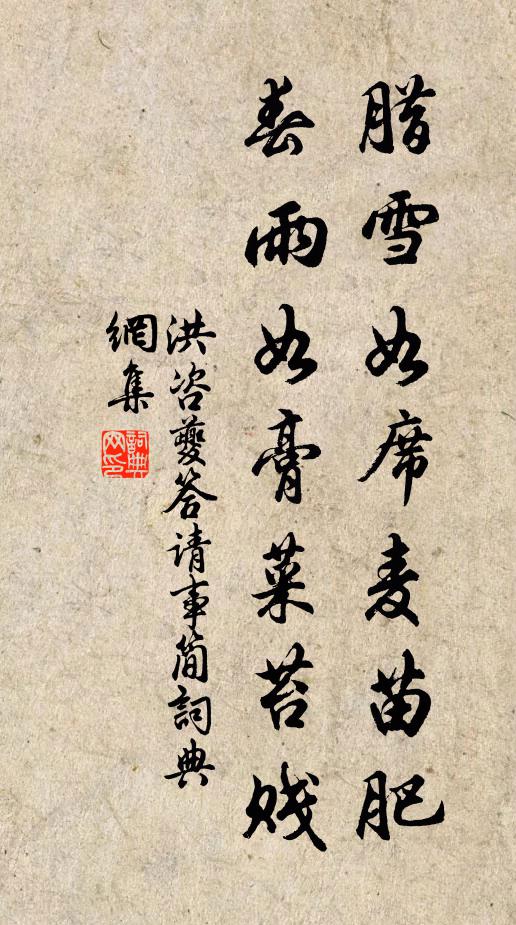 腊雪如席麦苗肥
春雨如膏菜苔贱
洪咨夔答请事简詞典
網集
詞典网印